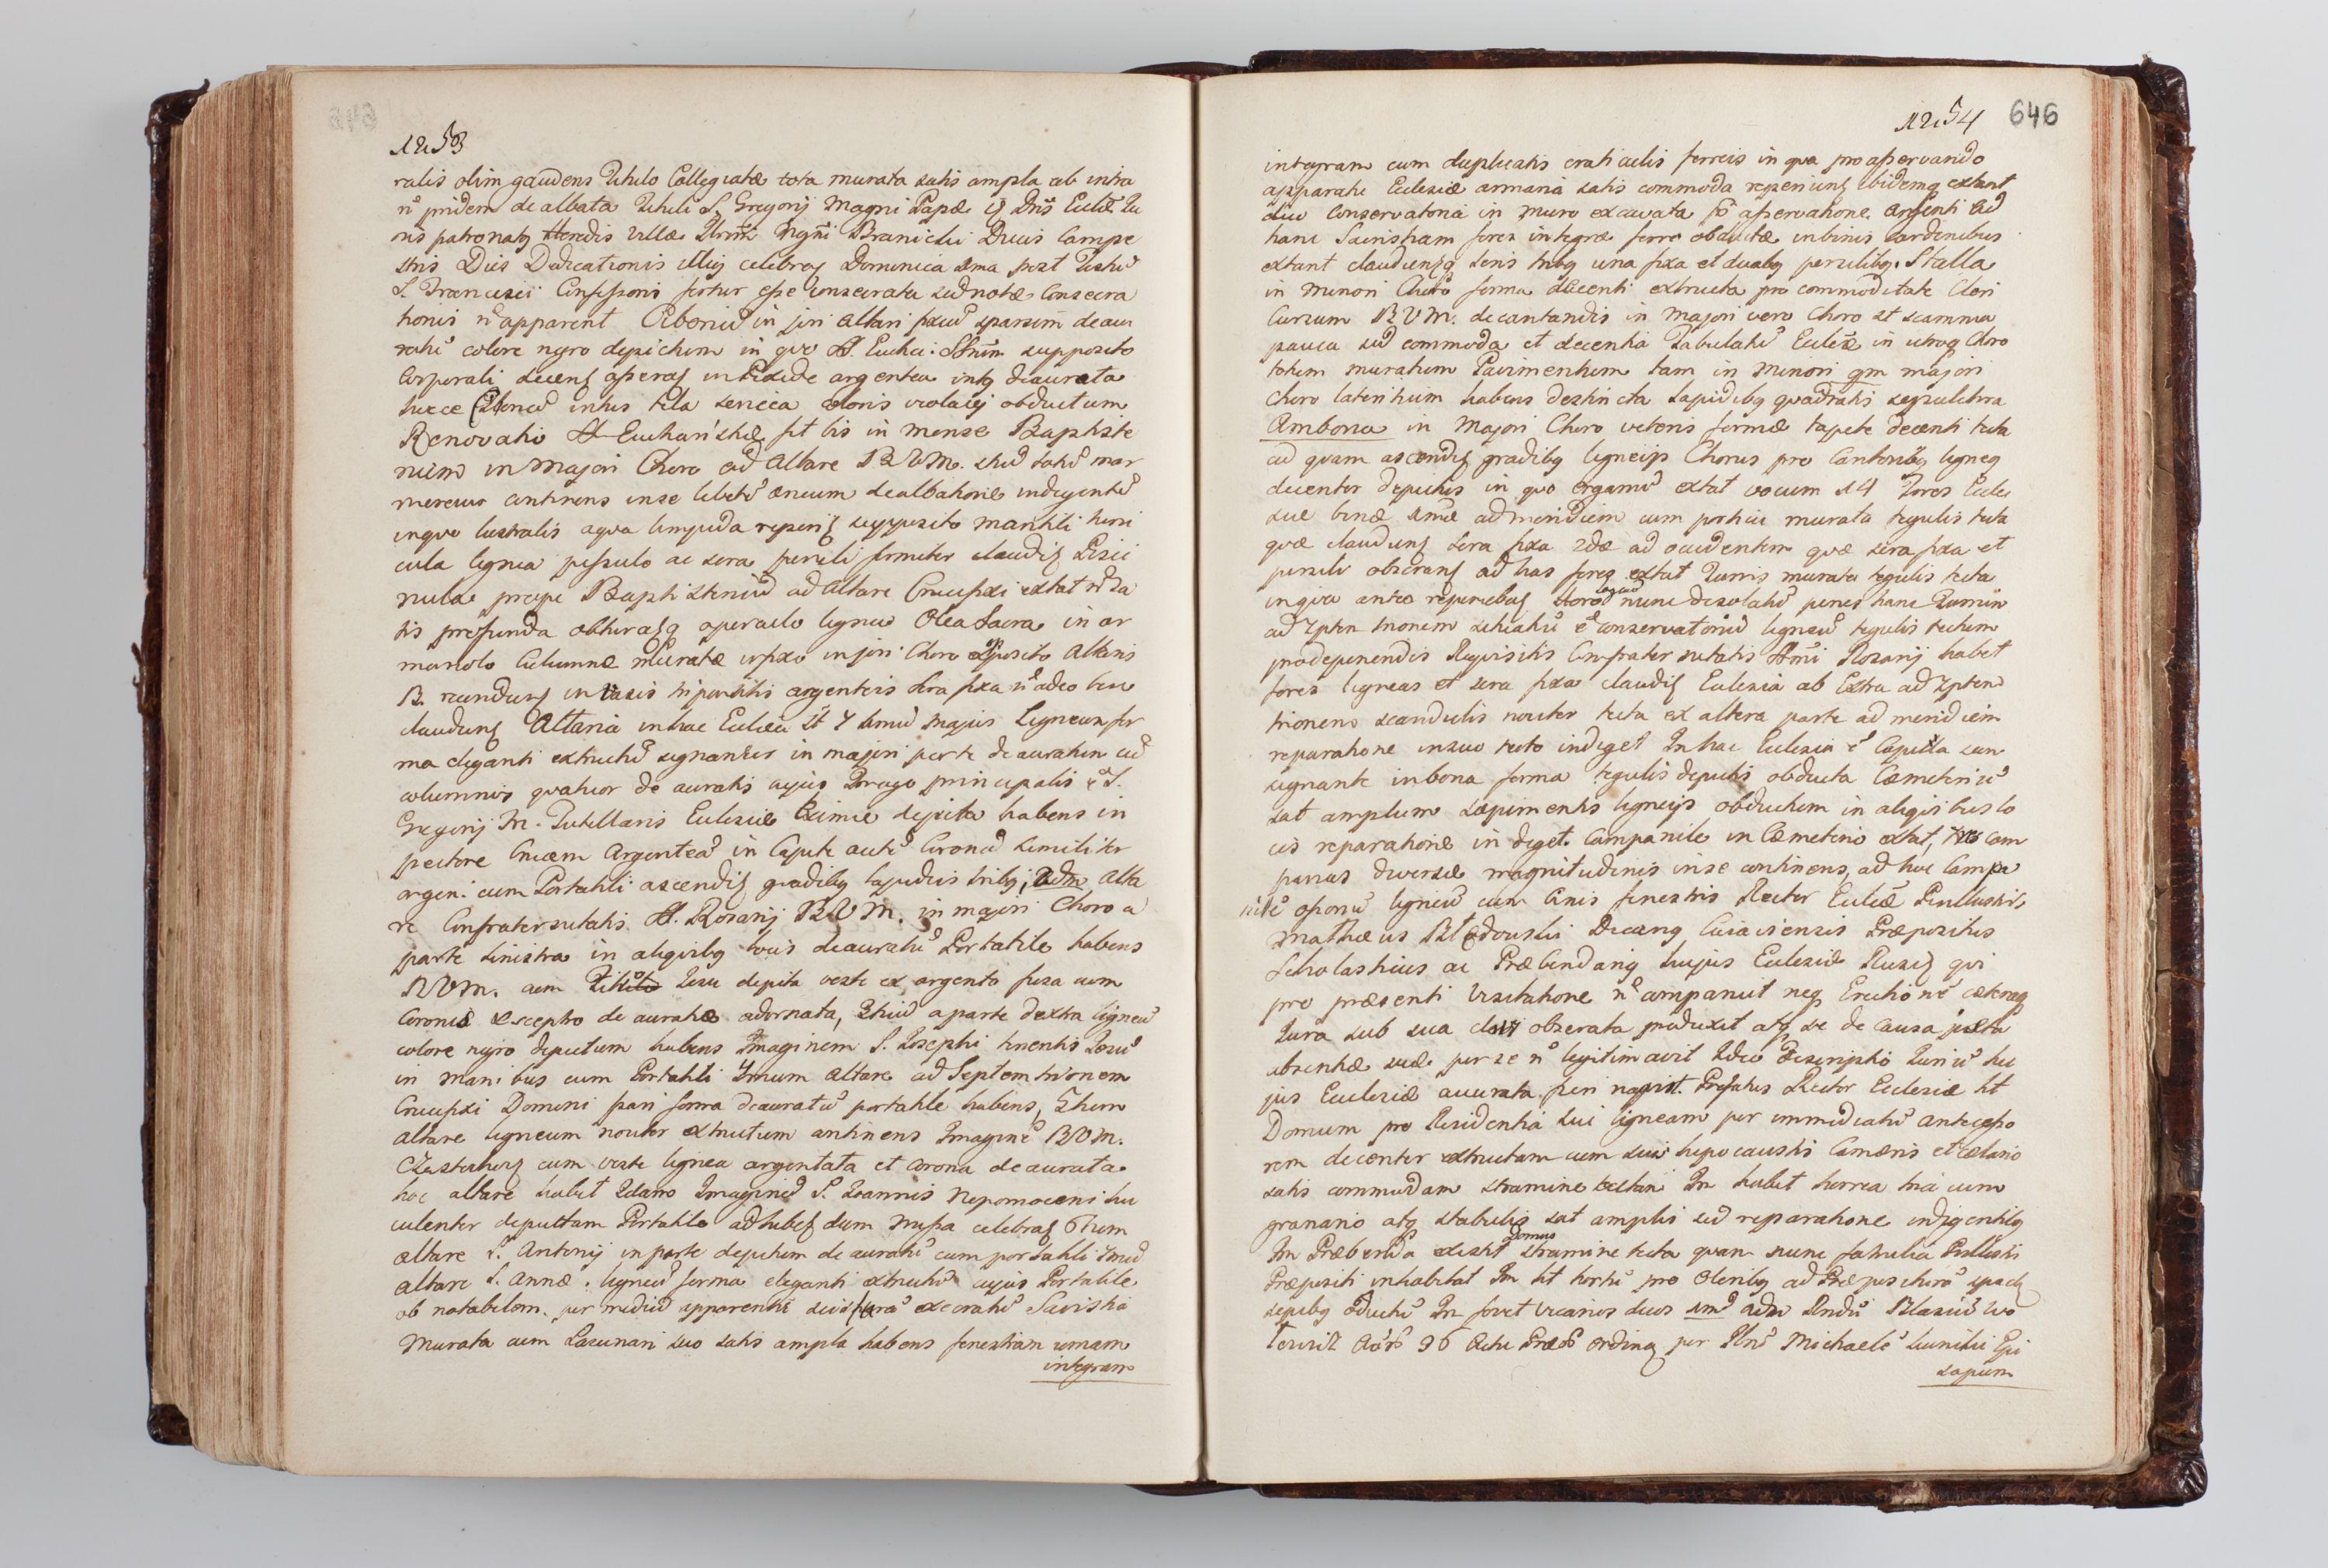 1253
ralis olim gaudens Titulo Collegiatæ tota murata satis ampla ab intra
nō pridem dealbata Tituli S. Gregorij Magni Papæ
ris patronatq Hæredis Villæ Branicki Ducis Campe
stris Dies Dedicationis illiq celebrat Dominica 2ma post Festū
S. Francisci Confessoris fertur esse consecrata sed notæ Consecra
tionis nō apparent Ciboriū in jri altari fixū sparsim deau
ratū colore nigro depictum in quo SS. Euchar: Sacrm supposito
Corporali decens asserat in Pixide argentea intq deaurata
hocce Ciboriū intus tela sericea coloris violacej obductum
Renovatio SS Euchari'stiæ fit bis in mense Baptiste
rium in Majori Choro ad Altare B V M. marmoreum
continens in se lebetē æneum dealbatione indigentē
in quo lustralis aqva limpida reperit supposito mantili turri
cula lignea pessulo ac sera pensili firmiter claudit Pisci
nula prope Baptisteriū ad Altare Crucifixi extat nō sa
tis profunda obturatq operculo ligneo Olea Sacra in ar
mariolo Columnæ muratæ infixo in jri Choro opposito Altaris
B. reconduns in vasis tripartitis argenteis sera fixa nō adeo bene
claudunt Altaria in hac Ecclesia st 7 primū majus Ligneum for
ma eleganti extructū segnanter in majori parte deauratum cū
columnis quatuor deauratis cujus Imago principalis ē S.
Gregorij M. Tutellaris Ecclesiæ eximie depicta habens in
pectore Crucem Argenteā in Capite autē Coronā similiter
argen: cum Portatili ascendit gradibq lapideis tribq, 2dum Alta
re Confraternitatis SS. Rosarij B V M. in majori Choro a
parte sinistra in aliqvibq locis deauratū Portatile habens
B V M. cum Jesu depicta veste ex argento fusa cum
Coronis & sceptro deauratæ adornata, 3tiū a parte dextra ligneū
colore nigro depictum habens Imaginem S. Josephi tenentis Jesū
in manibus cum Portatili 4tum Altare ad Septemtrionem
Crucifixi Domini pari forma deauratū portatile habens, 5tum
altare ligneum noviter extructum continens Imaginē B V M.
Czestochoq cum veste lignea argentata et corona deaurata
hoc altare habet Idam Imaginē S. Joannis Nepomoceni lu
culenter depictam Portatile adhibet dum Missa celebrat 6tum
altare S. Antonij in parte depictum deauratū cum portatili 7mū
altare S. Annæ ligneū forma eleganti extructū cujus Portatile
ob notabilem per mediū apparentē execratū Sacristia
Murata cum Lacunari suo satis ampla habens fenestram unam
integram
1254 646
integram cum duplicatis craticulis ferreis in qva pro asservando
apparatu Ecclesiæ armaria satis commoda reperiunt ibidemq extant
duo Conservatoria in muro excavata pō asservatione argenti ad
hanc Sacristiam fores integræ ferro obductæ in binis cardinibus
extant claudunt seris tribq una fixa et duabq pensilibq. Stalla
in Minori Choro forma decenti extructa pro commoditate Cleri
Cursum B V M. decantandis in Majori vero Choro st scamna
pauca sed commoda et decentia Tabulatū Ecclesiæ in utroq Choro
totum muratum Pavimentum tam in Minori qm majori
Choro lateritium habens destincta lapidibq qvadratis sepulchra
Ambona in Majori Choro veteris formæ tapete decenti tecta
ad quam ascendit gradibq ligneijs Chorus pro Cantoribq ligneq
decenter depictus in quo organū extat vocum 14 Fores Eccle
siæ binæ 1mæ ad meridiem cum porticu murata tegulis tecta
qvæ claudunt sera fixa 2dæ ad occidentem qvæ sera fixa et
pensili obserant ad has fores extat Turris murata tegulis tecta
in qva antea reperiebat nunc desolatū penes hanc Turrim
ad Septentrionem scituatū ē conservatoriū ligneū tegulis tectum
pro deponendis Requisitis Confraternitatis SSmi Rosarij habet
fores ligneas et sera fixa claudit Ecclesia ab Extra ad Septen
trionem scandulis noviter tecta ex altera parte ad meridiem
reparatione in suo tecto indiget In hac Ecclesia ē Capella
in bona forma tegulis depictis obducta Cæmeteriū
sat amplum sæpimentis ligneijs obductum in aliqvibus lo
cis reparatione indiget. Campanile in Cæmeterio extat, tres cam
panas diversæ magnitudinis in se continens, ad hoc Campa
nile ligneū cum binis fenestris Rector Ecclesiæ
Mathæus Decanq Præpositus
Scholasticus ac Præbendariq hujus Ecclesiæ qvi
pro præsenti Visitatione nō comparuit neq Erectionē cæteraq
Jura sub sua clavi obserata produxit atq se de causa justa
absentiæ suæ per se nō legitimavit Ideo descriptio Juriū hu
jus Ecclesiæ accurata fieri neqvit. Præfatus Rector Ecclesiæ ht
Domum pro Residentia sui ligneam per immediatū antecesso
rem decenter extructam cum suis hypocaustis Cameris et celario
satis commodam stramine tectam Im habet horrea tria cum
granario atq stabulis sat amplis sed reparatione indigentibq
In Præbenda existit Domus stramine tecta qvam nunc familia
Præpositi inhabitat Im ht hortū pro Oleribq ad Præposituram spect
sepibq obductū Im fovet Vicarios duos 1mū Adm Rndū Blasiū
96 ordinaq per Illmū Michaelē Epi
scopum